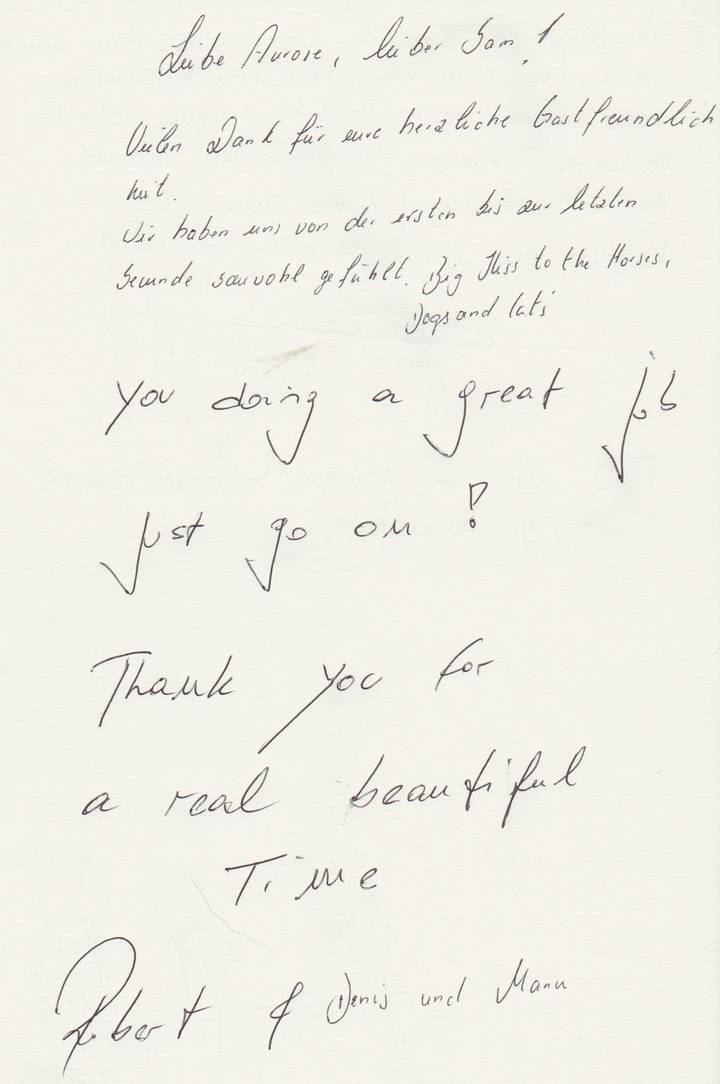 Liebe Aurore, lieber Sam!
Vielen Dank für eure herzliche Gastfreundlich
keit.
Wir haben uns von der ersten bis zur letzten
Secunde sauwohl gefühlt. Big Kiss to the Horses,
Dogs and Cat's
You doing a great job
just go on!
Thank you for
a real beautiful
Time
Robert & Denis und Manu